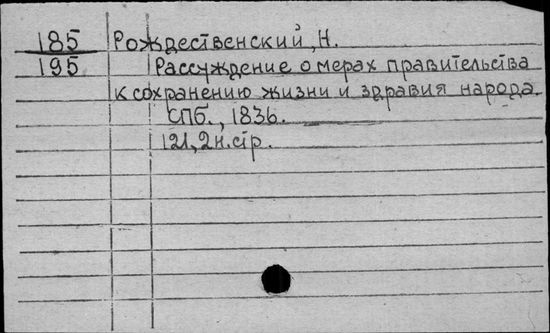 185 Рождественский, Н.
195 Рассуждение о мерах правительства
к сохранению жизни и здравия народа.
СПб., 1836.
121, 2 н. стр.